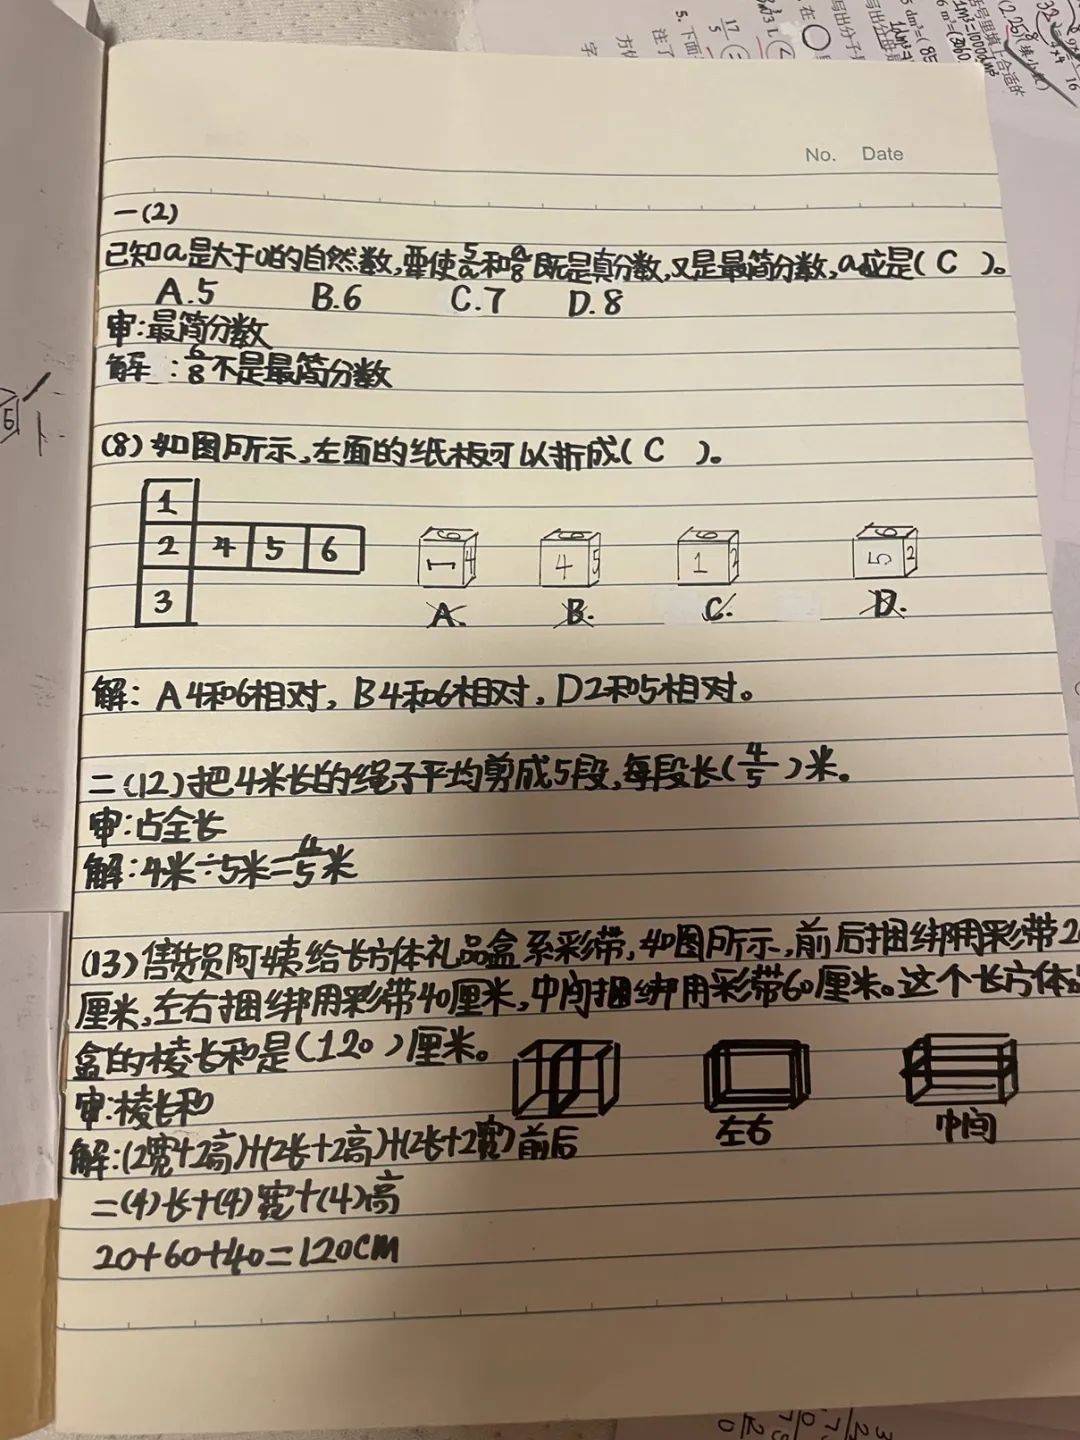 No. Date
一(2)
已知a是大于0的自然数,要使5/a和a/8既是真分数,又是最简分数,a应是( C )。
A.5 B.6 C.7 D.8
审:最简分数
解:6/8不是最简分数
(8)如图所示,左面的纸板可以折成( C )。
1
2 4 5 6
3
6 1 4
6 4 5
6 1 2
6 5 2
A. B. C. D.
解: A4和6相对, B4和6相对, D2和5相对。
二(12)把4米长的绳子平均剪成5段,每段长(4/5)米。
审:占全长
解:4米÷5米=4/5米
(13)售货员阿姨给长方体礼品盒系彩带,如图所示,前后捆绑用彩带2
厘米,左右捆绑用彩带40厘米,中间捆绑用彩带60厘米。这个长方体
盒的棱长和是(120)厘米。
审:棱长和
左右 中间
解:(2宽+2高)+(2长+2高)+(2长+2宽) 前后
=(4)长+(4)宽+(4)高
20+60+40=120CM